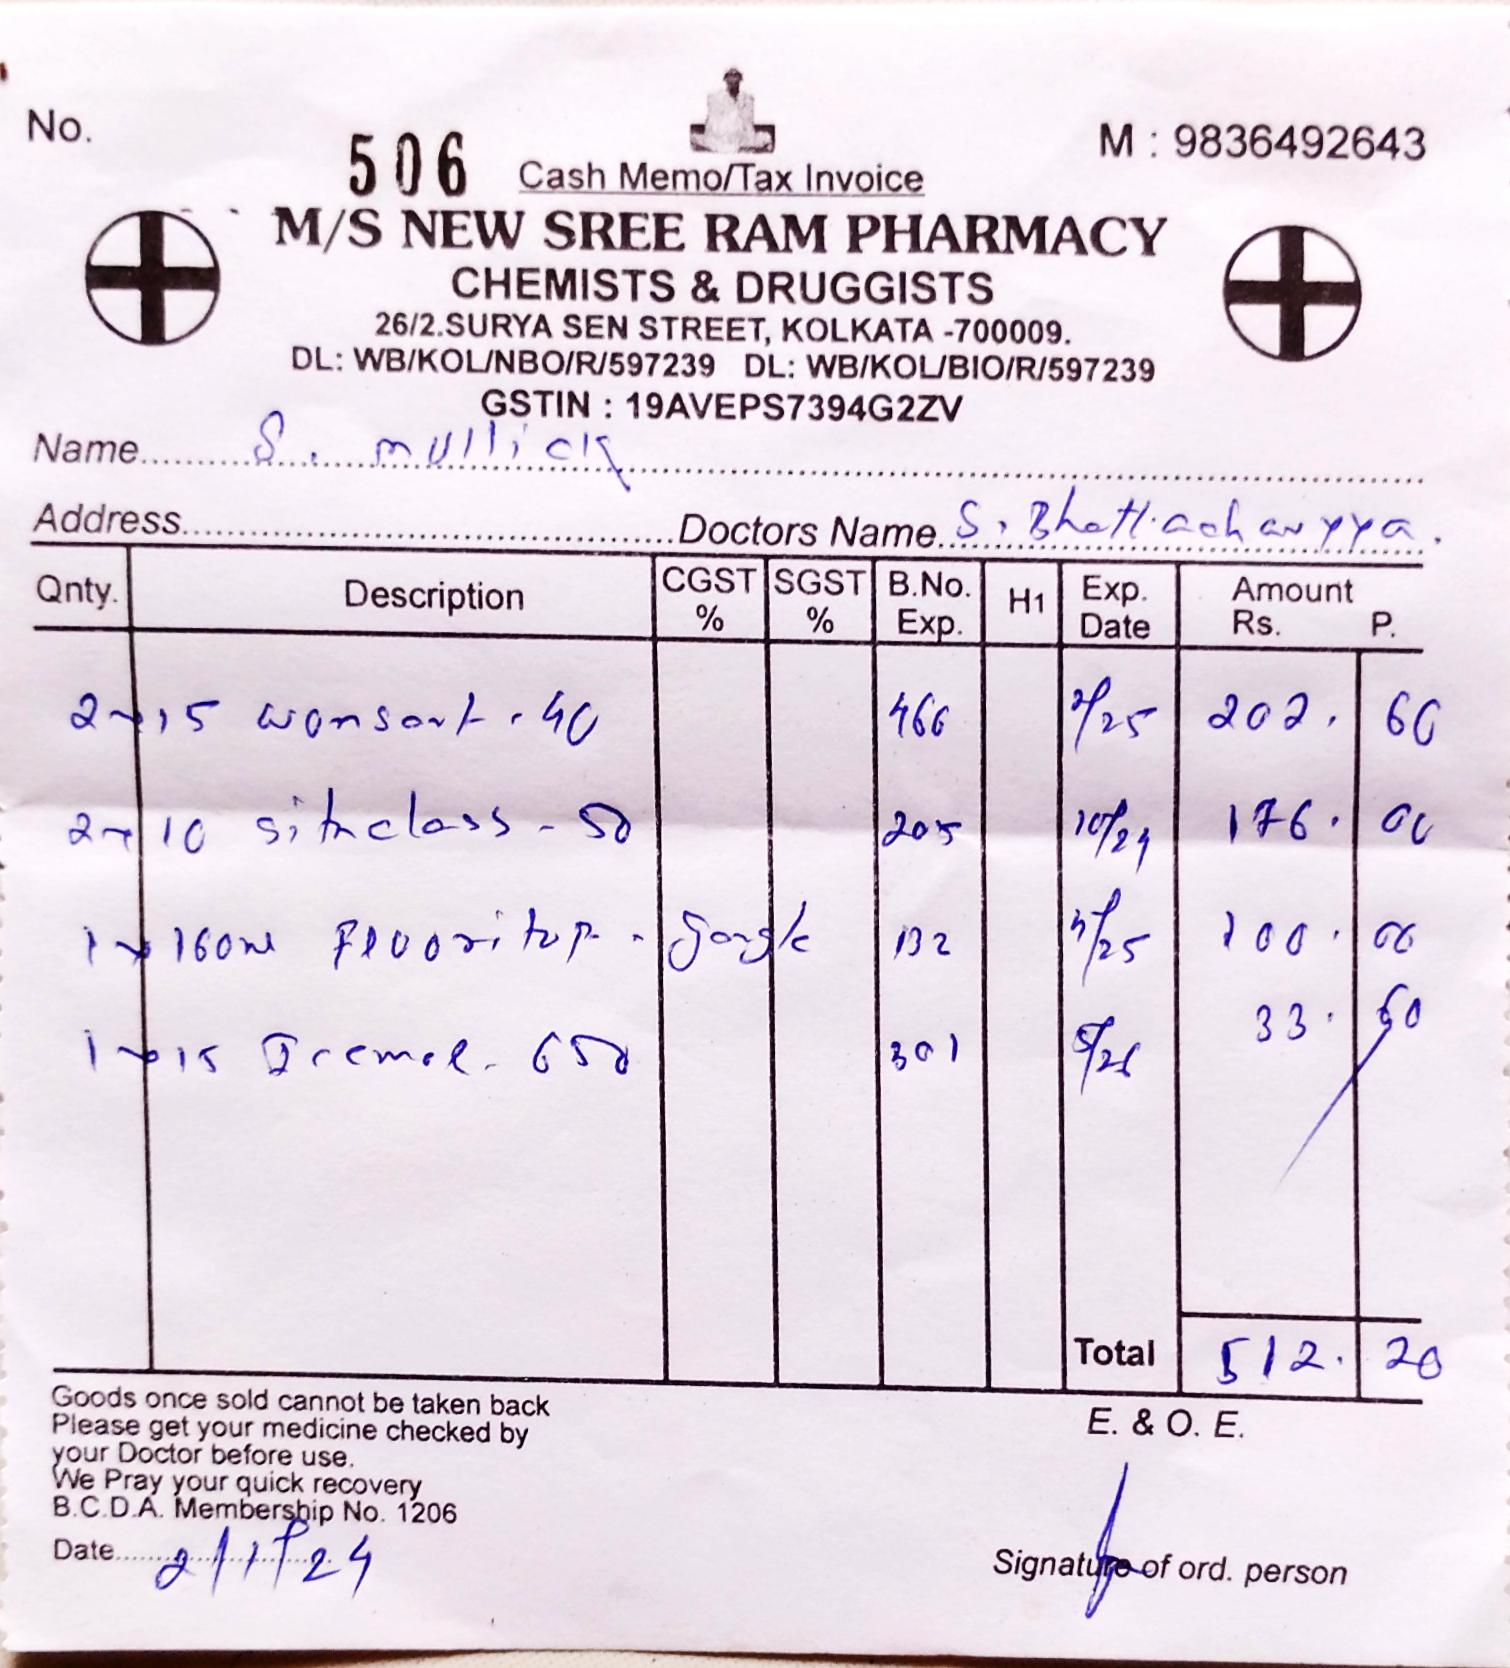 No. 506 M : 9836492643
Cash Memo/Tax Invoice
M/S NEW SREE RAM PHARMACY
CHEMISTS & DRUGGISTS
26/2.SURYA SEN STREET, KOLKATA -700009.
DL: WB/KOL/NBO/R/597239 DL: WB/KOL/BIO/R/597239
GSTIN : 19AVEPS7394G2ZV
Name S. mullick
Address Doctors Name S. Bhattacharyya.
Qnty. Description CGST % SGST % B.No. Exp. H1 Exp. Date Amount Rs. P.
2x15 wonsart. 40 466 2/25 202. 60
2x10 50 205 10/24 176. 00
1x160ml 132 /25 100. 00
1x15 650 301 5/26 33. 60
Total 512. 20
Goods once sold cannot be taken back
Please get your medicine checked by
your Doctor before use.
We Pray your quick recovery
B.C.D.A. Membership No. 1206
E. & O. E.
Date 2/1/24
Signature of ord. person